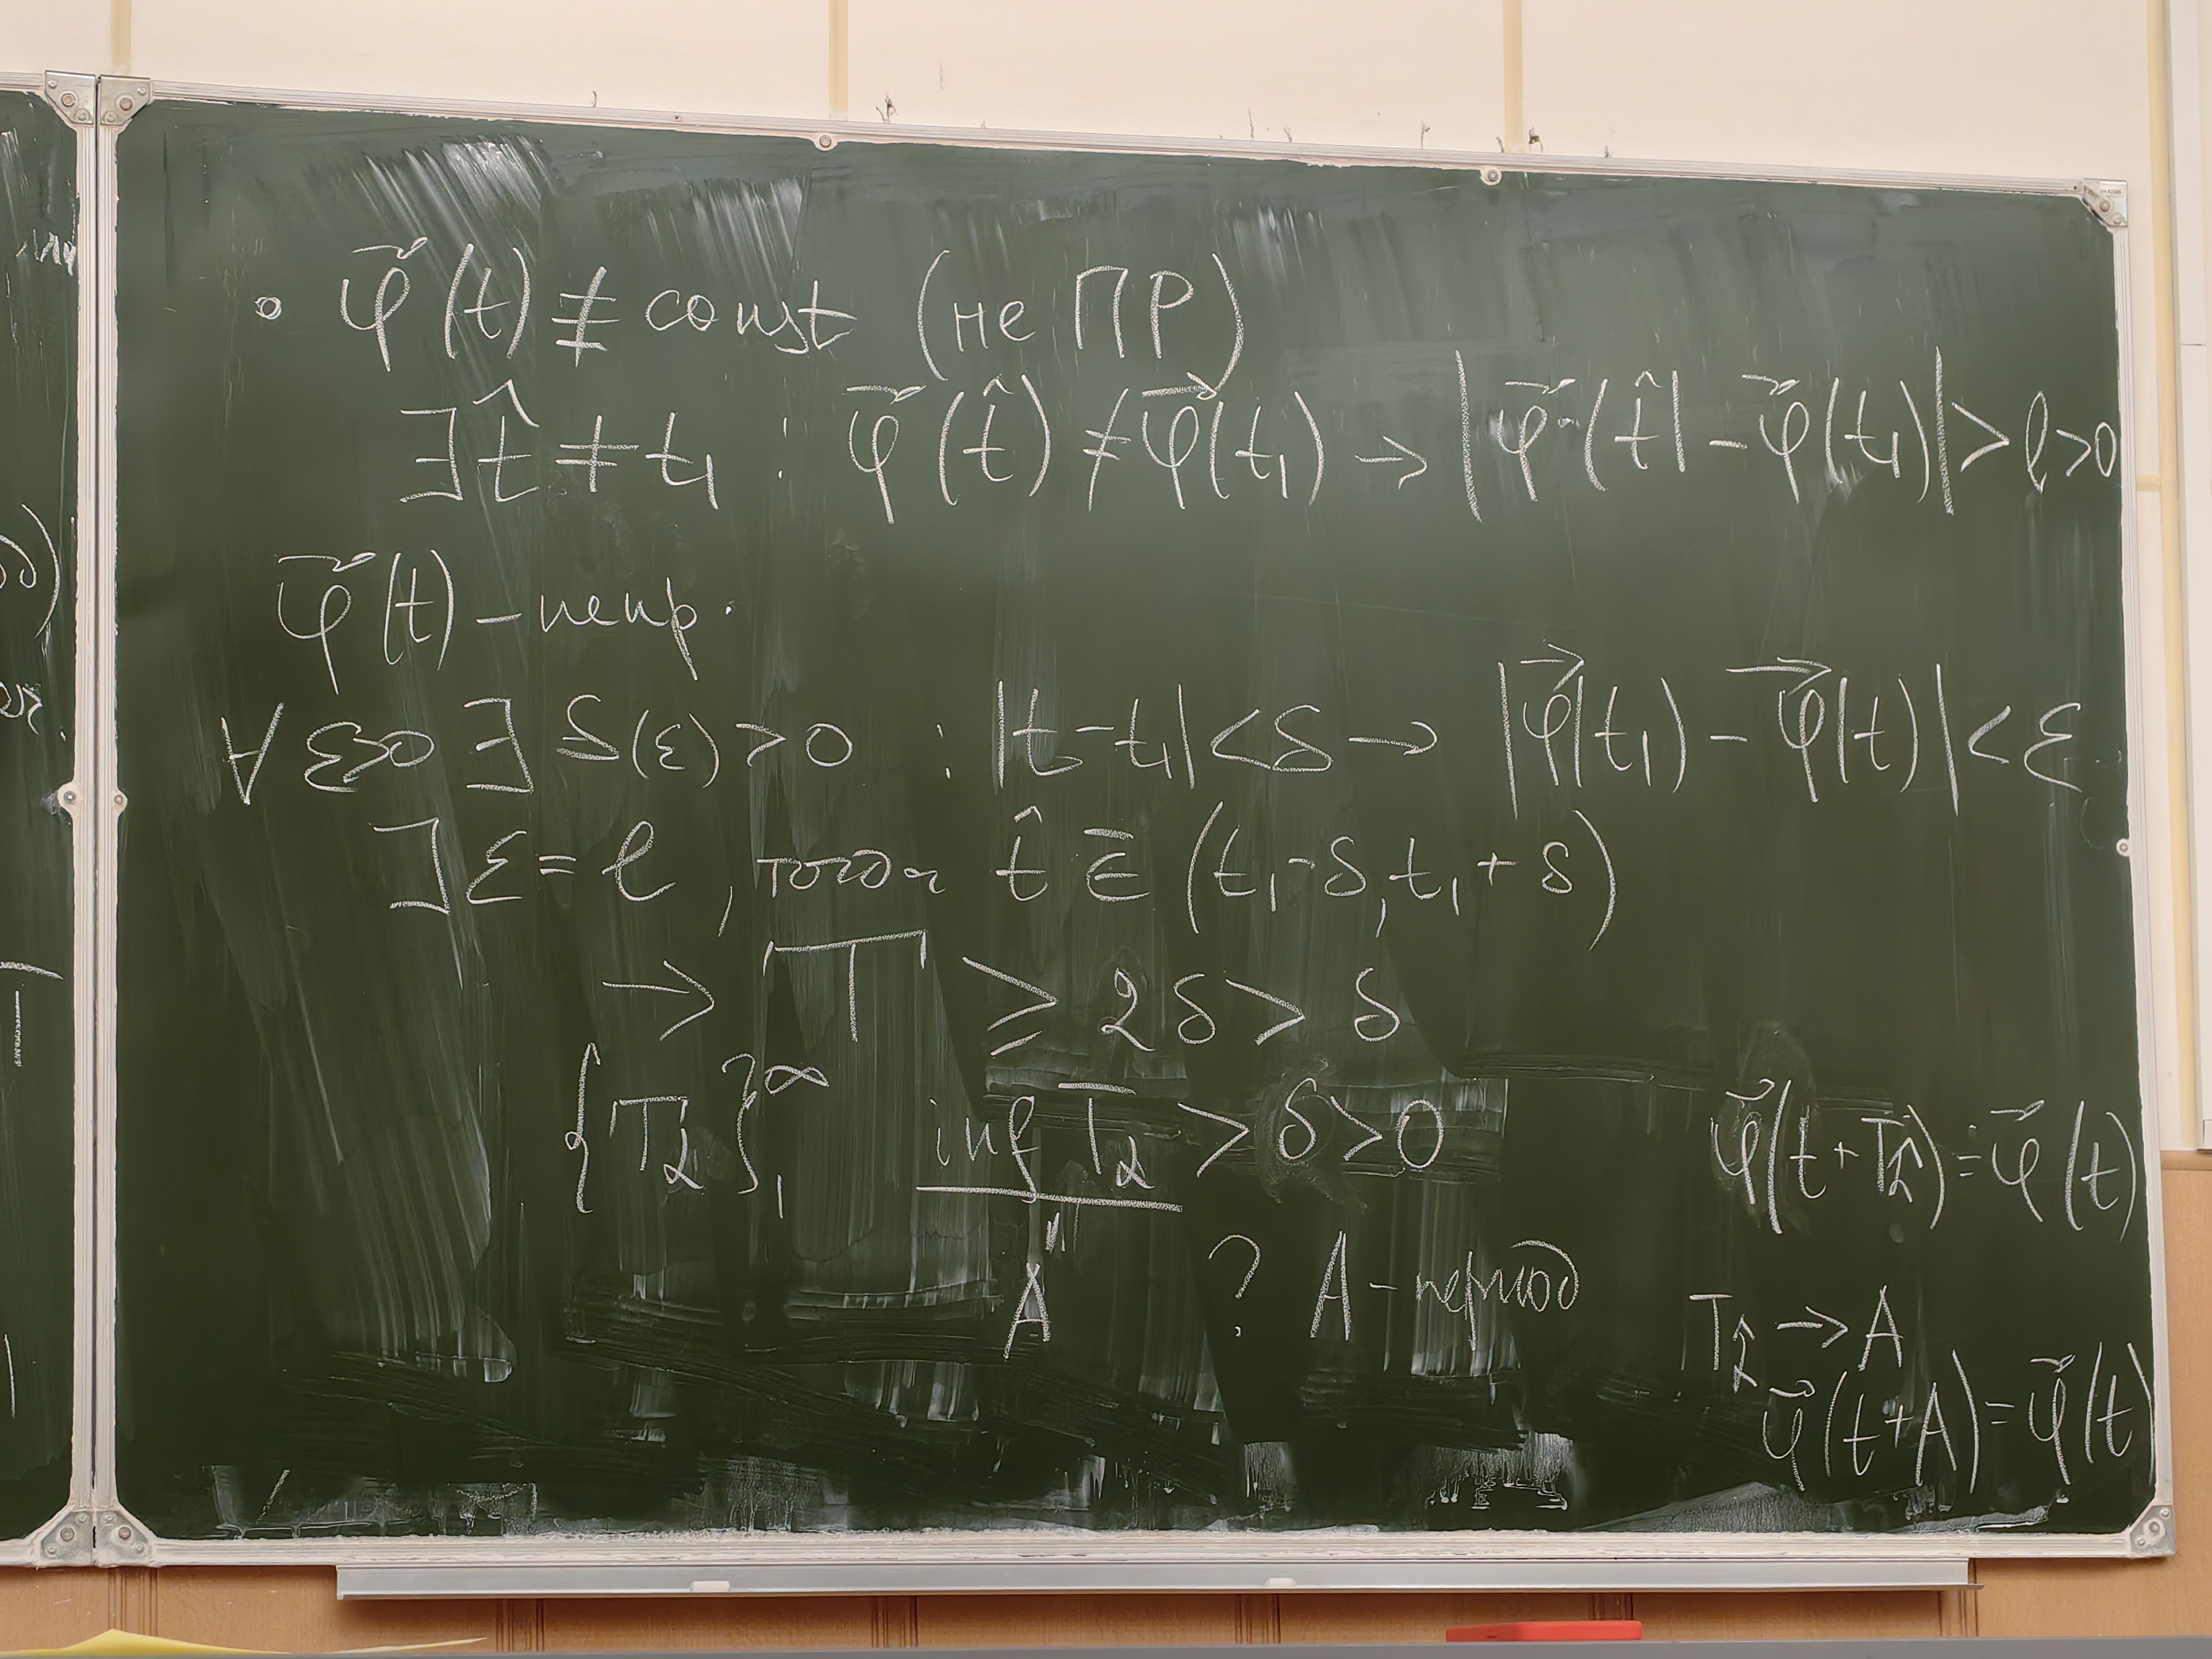 • φ⃗(t) ≢ const (не ПР)
∃ t̂ ≠ t₁ : φ⃗(t̂) ≠ φ⃗(t₁) → |φ⃗(t̂) − φ⃗(t₁)| > l > 0
φ⃗(t) – непр.
∀ ε>0 ∃ δ(ε)>0 : |t − t₁| < δ → |φ⃗(t₁) − φ⃗(t)| < ε
∃ ε = l, тогда t̂ ∉ (t₁ − δ, t₁ + δ)
→ T ≥ 2δ > δ
{T₂}₁^∞ inf T₂ > δ > 0
" A
? A – период
φ⃗(t + T₂) = φ⃗(t)
T₂ → A
φ⃗(t + A) = φ⃗(t)